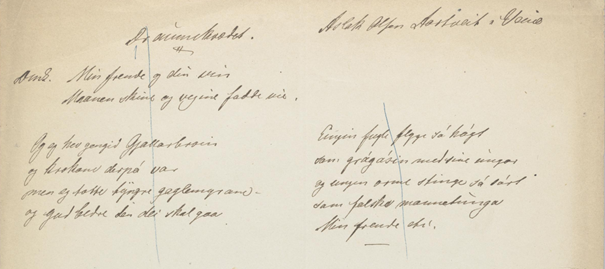 Draumekvædet.
Aslak Olsen Aartveit i
Omk. Min frende og din vein
Maanen skine og vegine fadde vie.
Og eg her gengid Gjallarbroin
og krokane derpå var
men eg totte
og den dei skal gaa
Engin fugle flyge så högt
som grågåsen med sine ungar
og engen orme stinge så sårt
som falske mannetunga
Min frende etc.